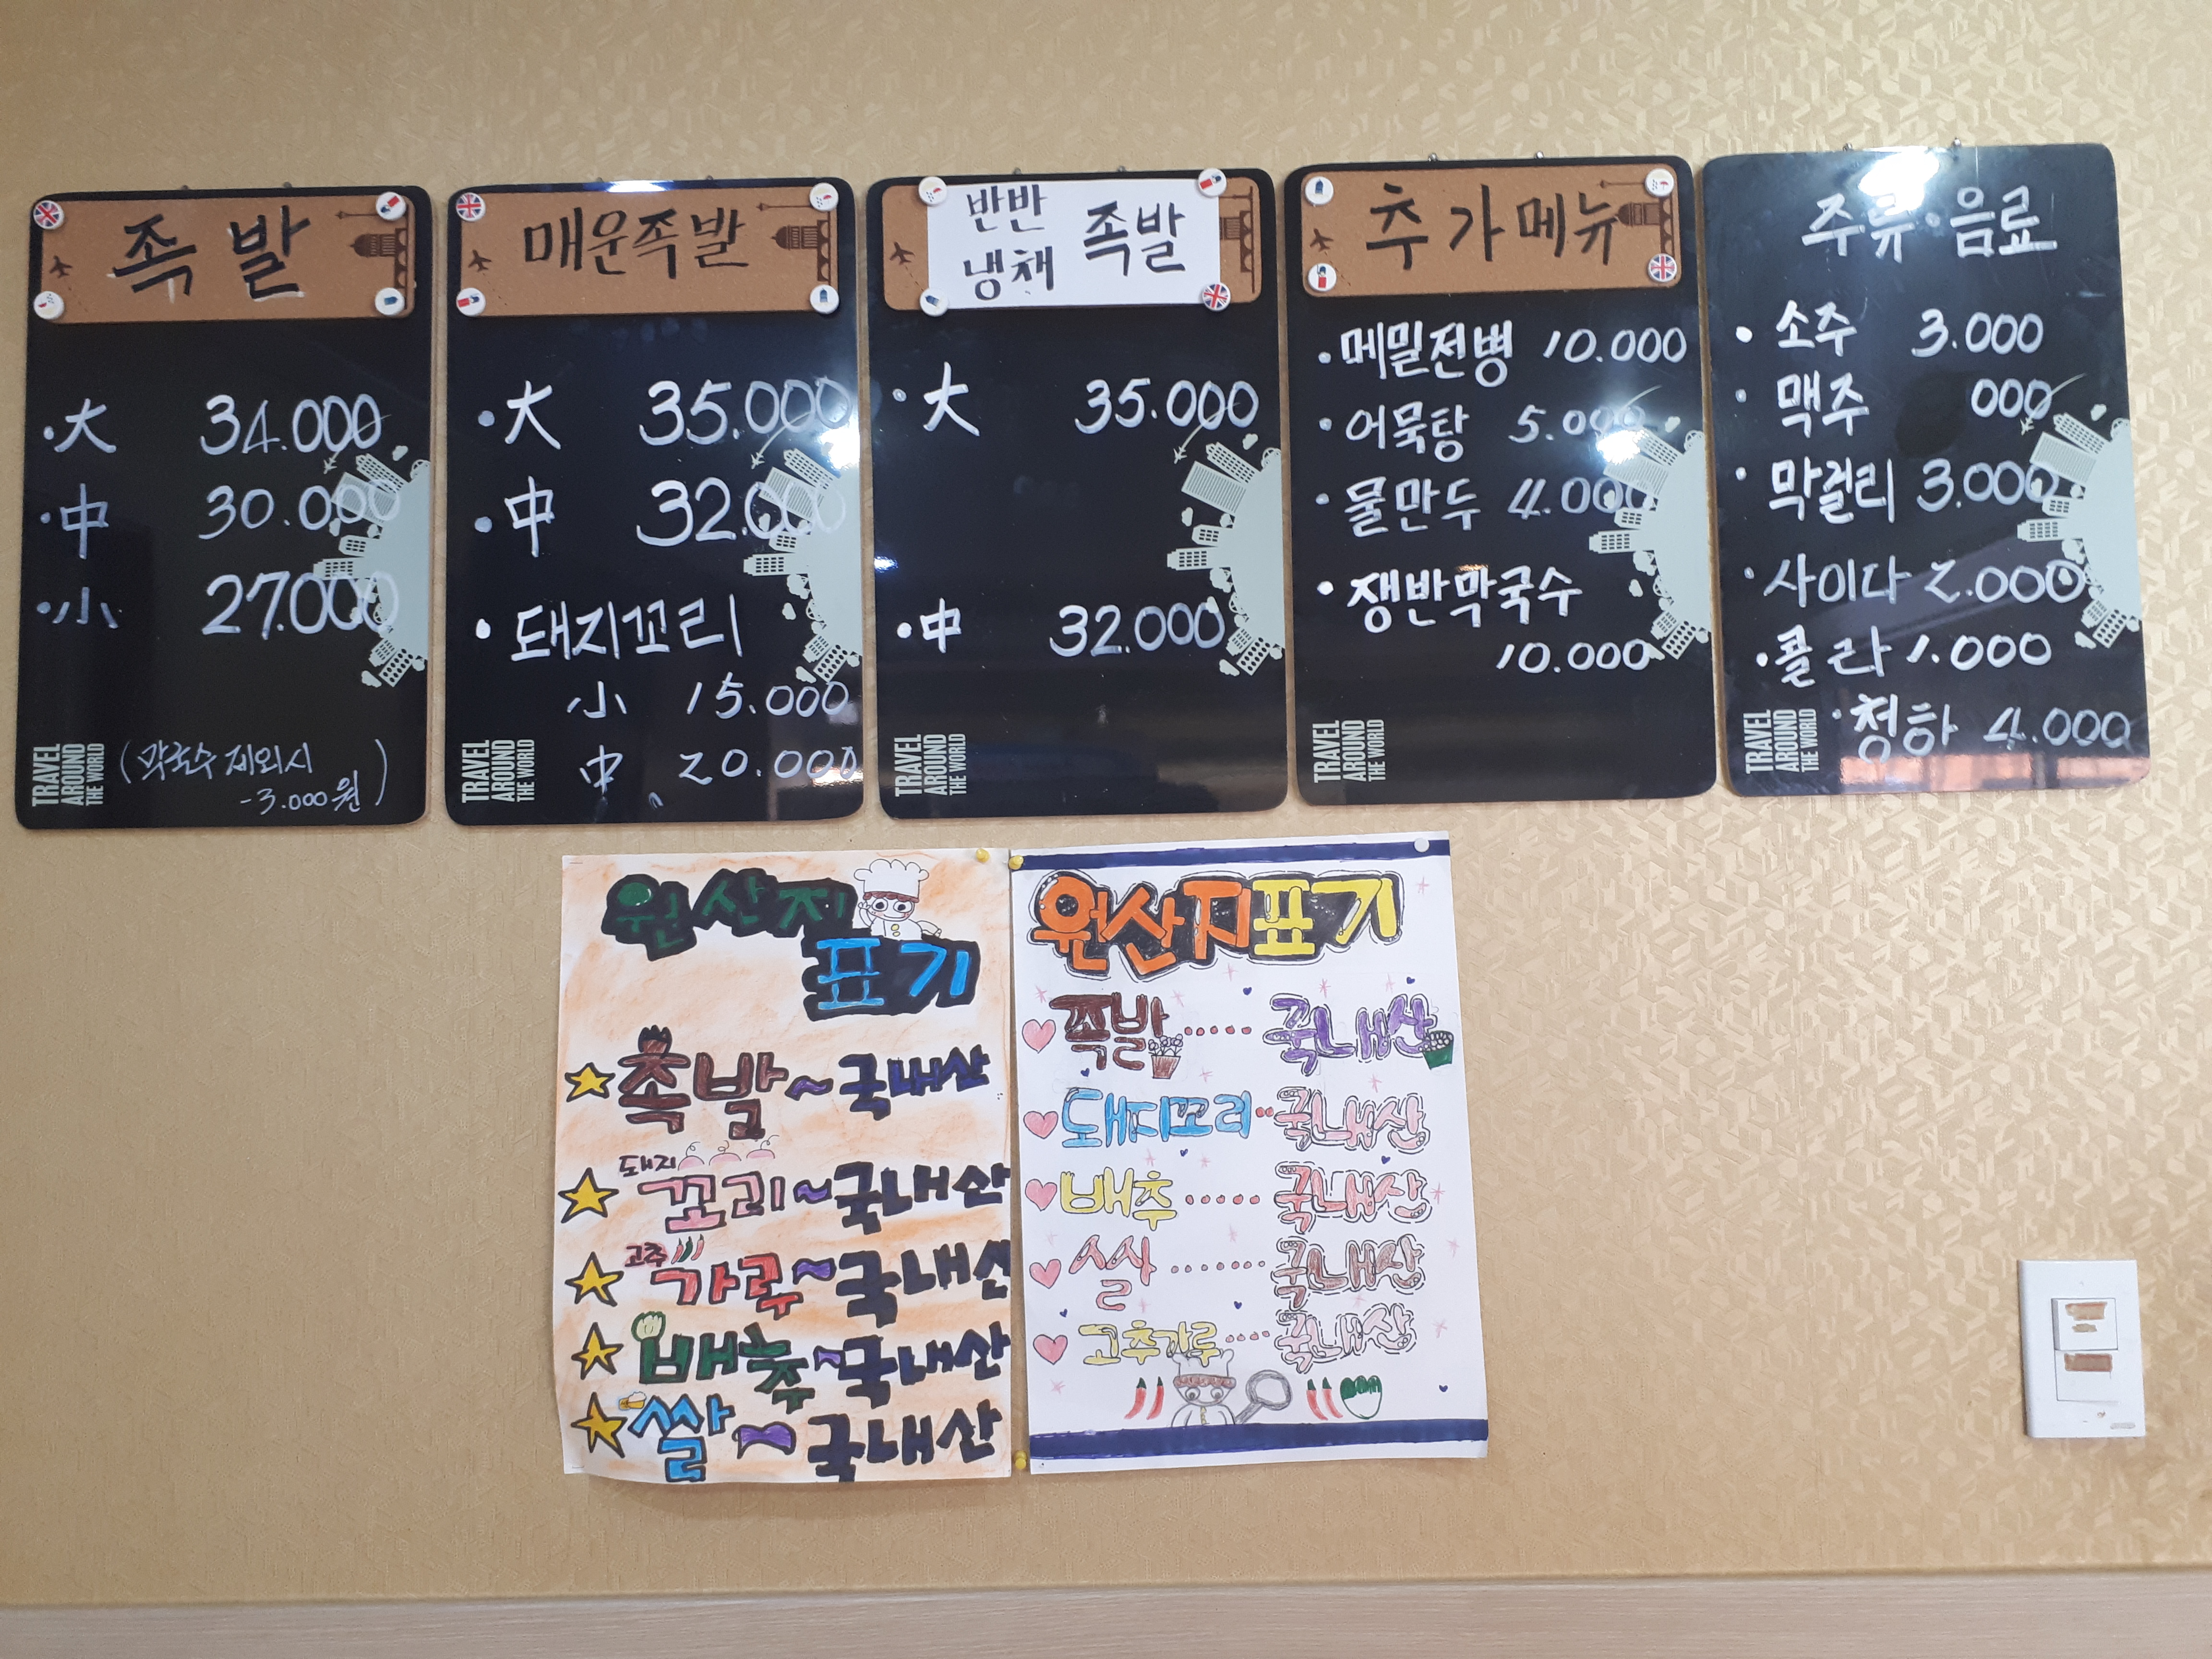 족발
·大 34.000
·中 30.000
·小 27.000
(막국수 제외시
-3.000원)
TRAVEL
AROUND
THE WORLD
매운족발
·大 35.000
·中 32.000
·돼지꼬리
小 15.000
中 20.000
TRAVEL
AROUND
THE WORLD
반반
냉채 족발
·大 35.000
·中 32.000
TRAVEL
AROUND
THE WORLD
추가메뉴
·메밀전병 10.000
·어묵탕 5.000
·물만두 4.000
·쟁반막국수
10.000
TRAVEL
AROUND
THE WORLD
주류·음료
·소주 3.000
·맥주 000
·막걸리 3.000
·사이다 2.000
·콜라 1.000
·청하 4.000
TRAVEL
AROUND
THE WORLD
원산지
표기
족발~국내산
돼지
꼬리~국내산
고추
가루~국내산
배추~국내산
쌀~국내산
원산지표기
족발.....국내산
돼지꼬리..국내산
배추.....국내산
쌀.......국내산
고추가루....국내산